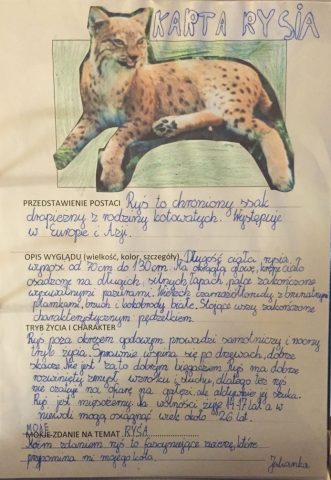 KARTA RYSIA
PRZEDSTAWIENIE POSTACI Ryś to chroniony ssak
drapieżny z rodziny kotowatych. Występuje
w Europie i Azji.
OPIS WYGLĄDU (wielkość, kolor, szczegóły) Długość ciała rysia
wynosi od 70cm do 130cm. Ma okrągłą głowę, krępe ciało
osadzone na długich, silnych łapach, palce zakończone
wysuwalnymi pazurami. Wierzch czerwonobrunatny z brunatnymi
plamkami, brzuch i bokobrody białe. Stojące uszy zakończone
charakterystycznym pędzelkiem.
TRYB ŻYCIA I CHARAKTER
Ryś poza okresem godowym prowadzi samotniczy i nocny
tryb życia. Sprawnie wspina się po drzewach, dobrze
skacze. Nie jest za to dobrym biegaczem. Ryś ma dobrze
rozwinięty zmysł wzroku i słuchu, dlatego też ryś
nie czatuje na ofiarę na gałęzi, ale aktywnie jej szuka.
Ryś jest mięsożerny. Na wolności żyje 14-17 lat a w
niewoli mogą osiągnąć wiek około 26 lat.
MOJE
MOJE ZDANIE NA TEMAT RYSIA
Moim zdaniem ryś to fascynujące zwierzę, które
przypomina mi mojego kota.